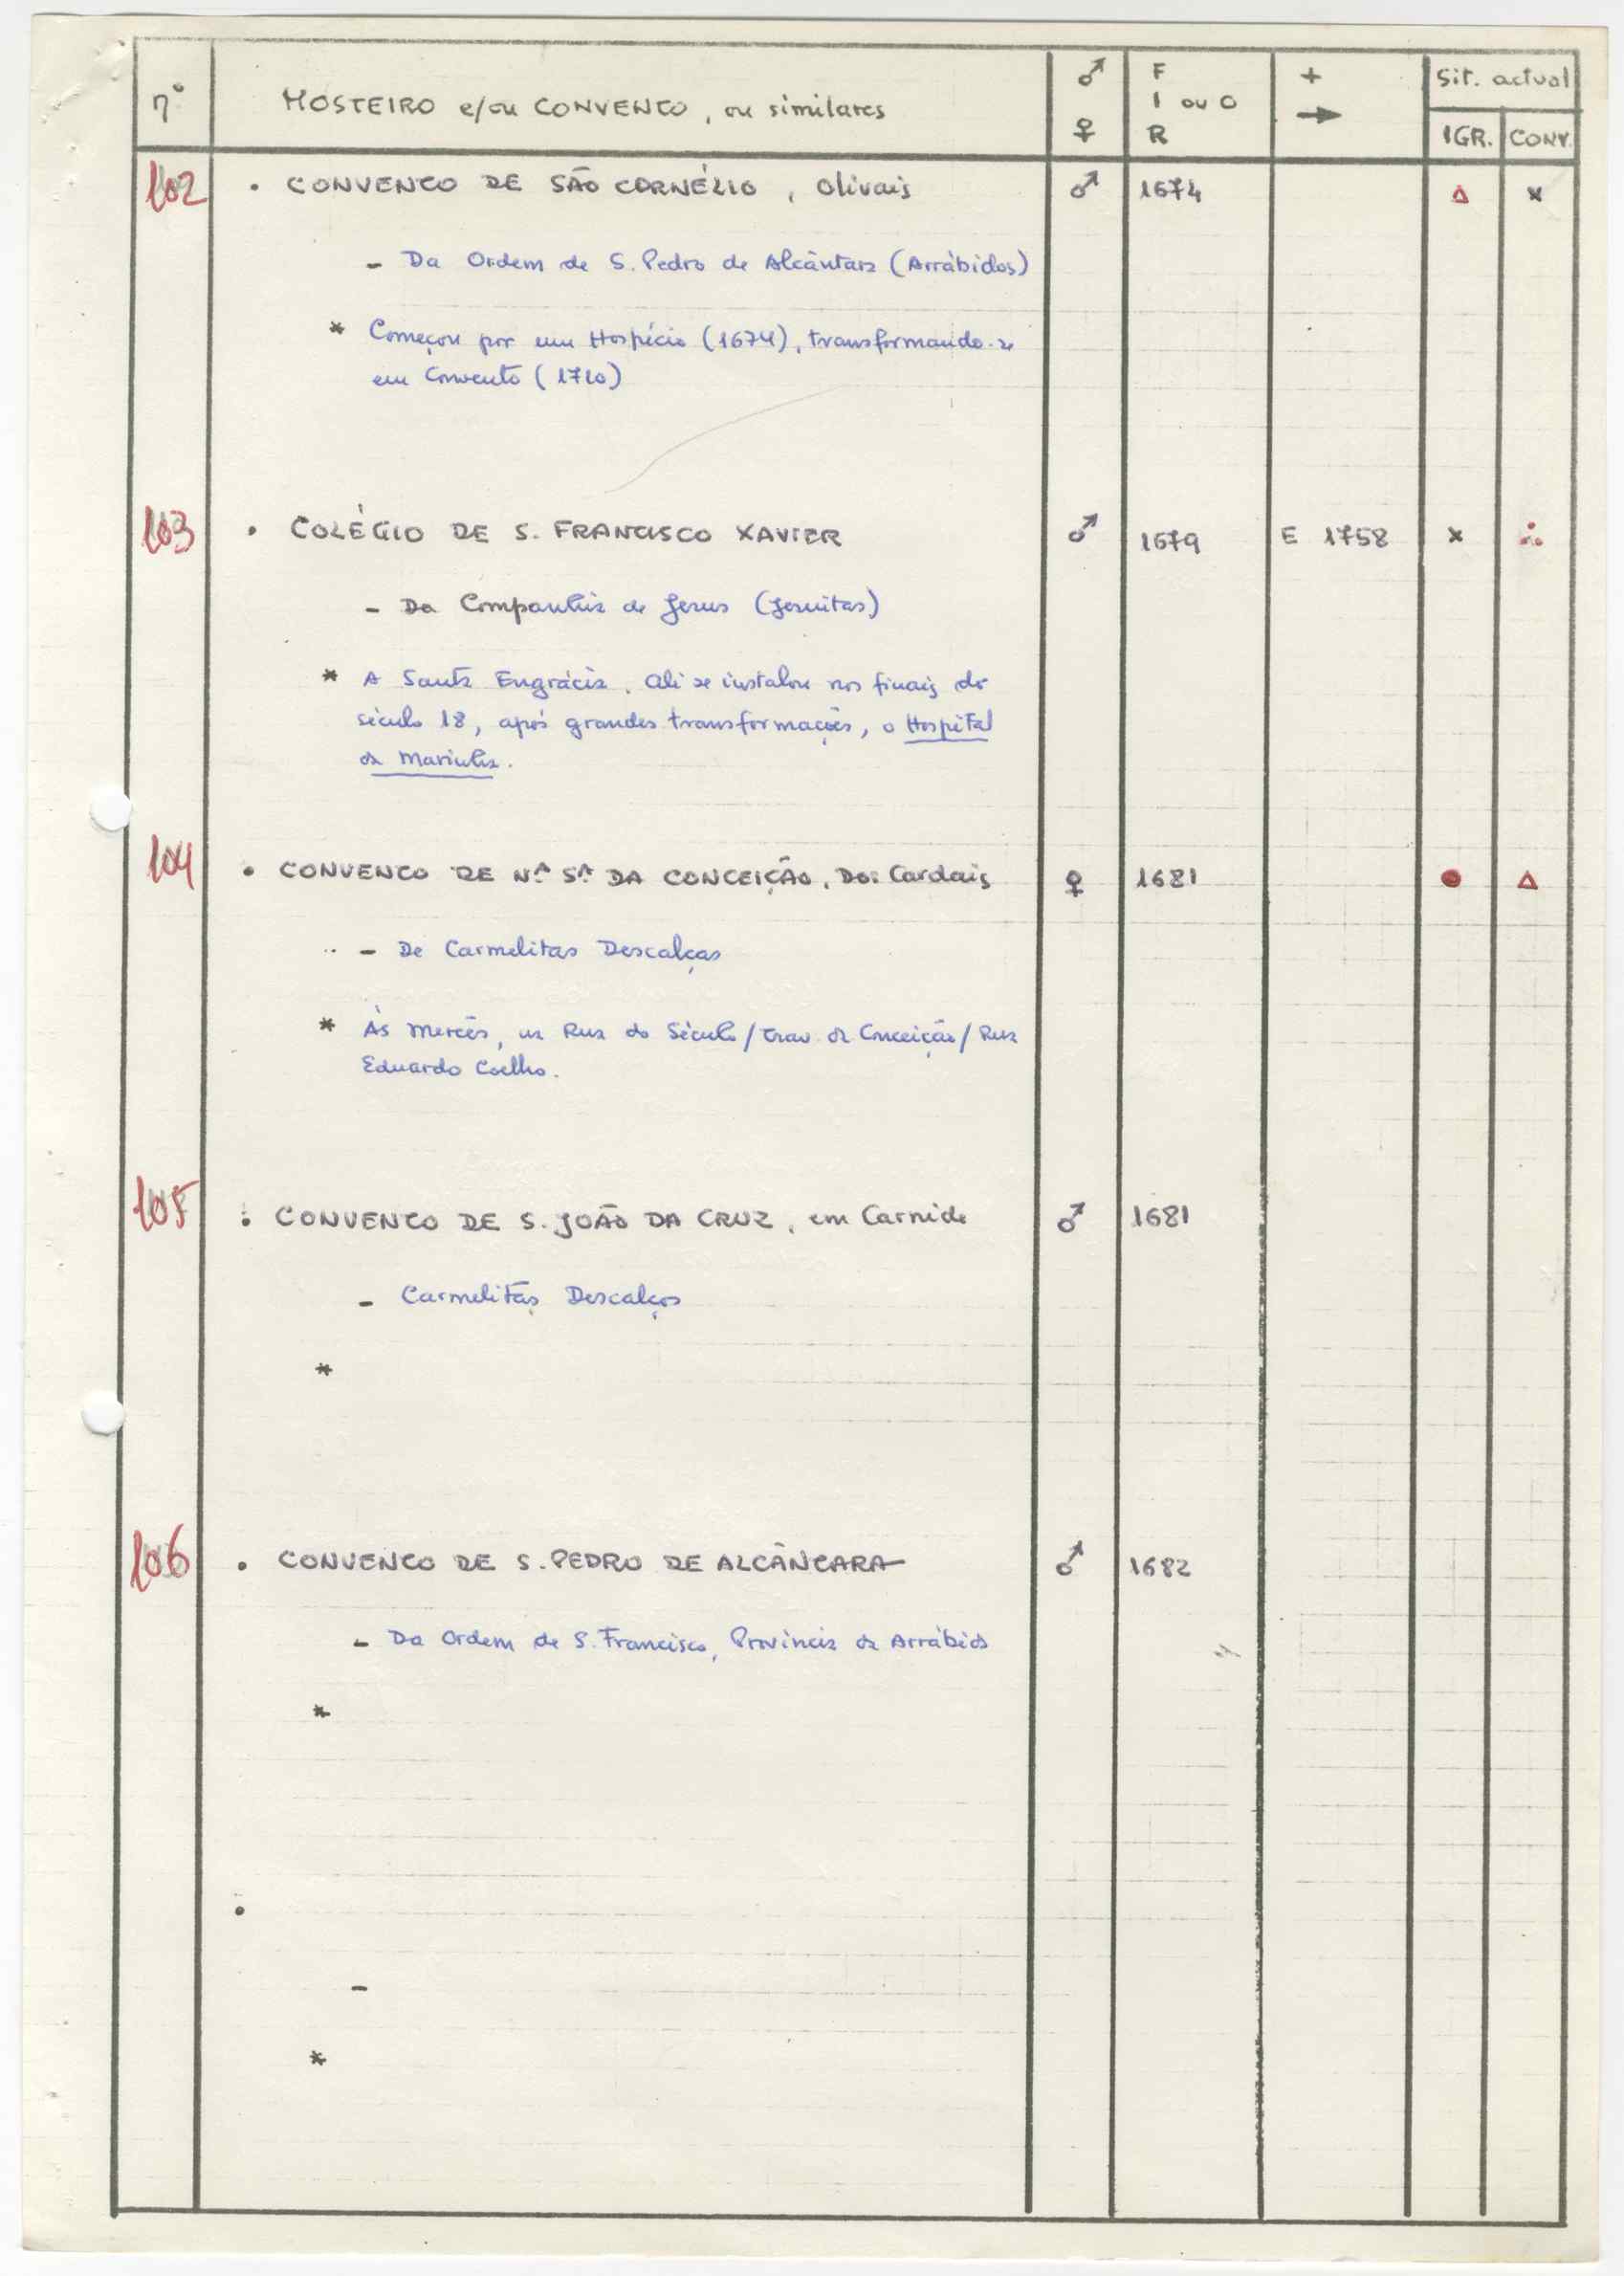 nº MOSTEIRO e/ou CONVENTO, ou similares ♂ ♀ F I ou O R + → Sit. actual IGR. CONV.
102 • CONVENTO DE SÃO CORNÉLIO, Olivais ♂ 1674 △ x
- Da Ordem de S. Pedro de Alcântara (Arrábidos)
* Começou por um Hospício (1674), transformando-se
em Convento (1710)
103 • COLÉGIO DE S. FRANCISCO XAVIER ♂ 1679 E 1758 x ∴
- Da Companhia de Jesus (Jesuitas)
* A Santa Engrácia. Ali se instalou nos finais do
século 18, após grandes transformações, o Hospital
da Marinha.
104 • CONVENTO DE Nª Sª DA CONCEIÇÃO, Dos Cardais ♀ 1681 ● △
- De Carmelitas Descalças
* Às Mercês, na Rua do Século/Trav. da Conceição/Rua
Eduardo Coelho.
105 • CONVENTO DE S. JOÃO DA CRUZ, em Carnide ♂ 1681
- Carmelitas Descalços
*
106 • CONVENTO DE S. PEDRO DE ALCÂNTARA ♂ 1682
- Da Ordem de S. Francisco, Província da Arrábida
*
•
-
*